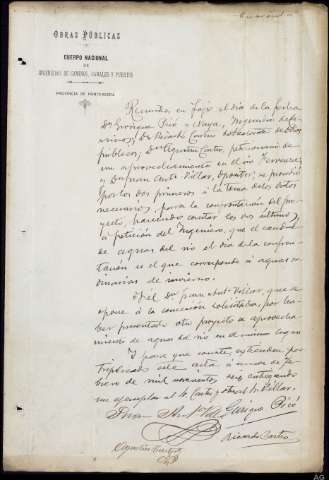 OBRAS PÚBLICAS
CUERPO NACIONAL
DE
INGENIEROS DE CAMINOS, CANALES Y PUERTOS
PROVINCIA DE PONTEVEDRA
Reunidos en el día de la fecha
Dn Enrique Picó
Dn Ricardo Castro
públicas, Dn Agustín Castro, peticionario de
un aprovechamiento en el río
y Dn Juan Villar, opositor, se procedió
por los dos primeros a la toma de los datos
necesarios, para la confrontación del pro-
yecto, haciendo constar los dos últimos,
á petición del Ingeniero, que el caudal
de aguas del río el día de la confron-
tación es el que corresponde á aguas or-
dinarias de invierno.
Y el Dn Juan Villar, que se
opone á la concesión solicitada, por ha-
ber presentado otro proyecto de aprovecha-
miento de aguas del río en el mismo lugar
Y para que conste, extienden por
triplicado este acta á
de mil novecientos seis entregando
un ejemplar al Sr. Castro y otro al Sr. Villar.
Juan Enrique Picó
Ricardo Castro
Agustín